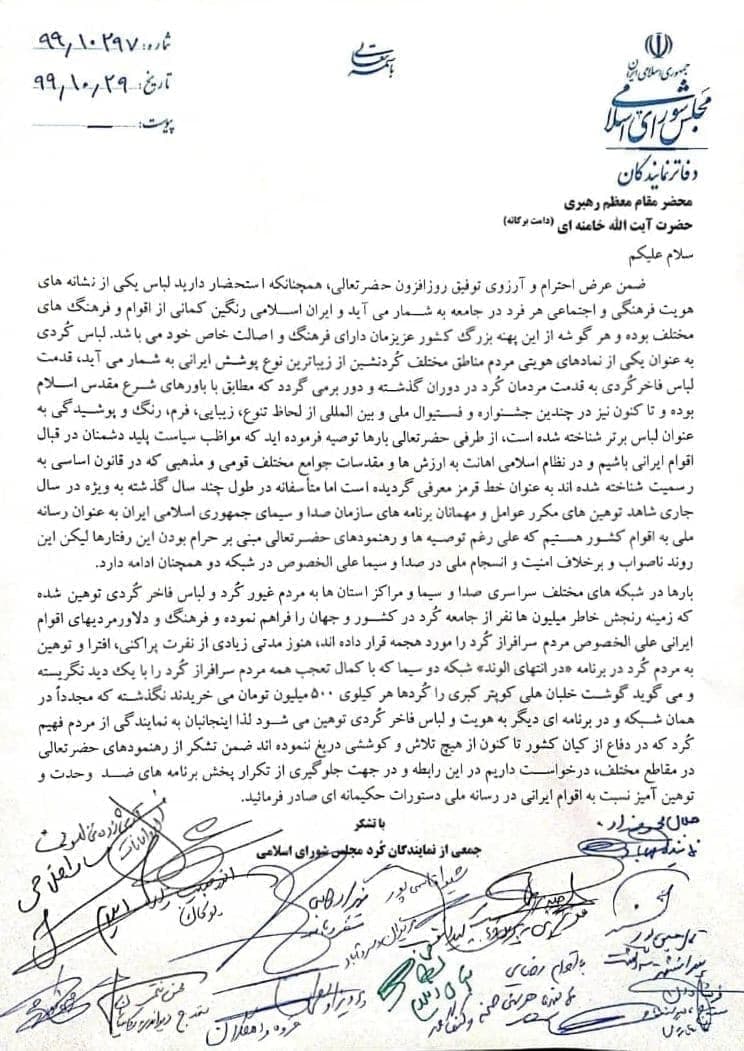 باسمه تعالی
جمهوری اسلامی ایران
مجلس شورای اسلامی
دفاتر نمایندگان
شماره: ۹۹٫۱۰۲۹۷
تاریخ: ۹۹٫۱۰٫۲۹
پیوست: ــــ
محضر مقام معظم رهبری
حضرت آیت الله خامنه ای (دامت برکاته)
سلام علیکم
ضمن عرض احترام و آرزوی توفیق روزافزون حضرتعالی، همچنانکه استحضار دارید لباس یکی از نشانه های
هویت فرهنگی و اجتماعی هر فرد در جامعه به شمار می آید و ایران اسلامی رنگین کمانی از اقوام و فرهنگ های
مختلف بوده و هر گوشه از این پهنه بزرگ کشور عزیزمان دارای فرهنگ و اصالت خاص خود می باشد. لباس کُردی
به عنوان یکی از نمادهای هویتی مردم مناطق مختلف کُردنشین از زیباترین نوع پوشش ایرانی به شمار می آید، قدمت
لباس فاخر کُردی به قدمت مردمان کُرد در دوران گذشته و دور برمی گردد که مطابق با باورهای شرع مقدس اسلام
بوده و تا کنون نیز در چندین جشنواره و فستیوال ملی و بین المللی از لحاظ تنوع، زیبایی، فرم، رنگ و پوشیدگی به
عنوان لباس برتر شناخته شده است، از طرفی حضرتعالی بارها توصیه فرموده اید که مواظب سیاست پلید دشمنان در قبال
اقوام ایرانی باشیم و در نظام اسلامی اهانت به ارزش ها و مقدسات جوامع مختلف قومی و مذهبی که در قانون اساسی به
رسمیت شناخته شده اند به عنوان خط قرمز معرفی گردیده است اما متأسفانه در طول چند سال گذشته به ویژه در سال
جاری شاهد توهین های مکرر عوامل و مهمانان برنامه های سازمان صدا و سیمای جمهوری اسلامی ایران به عنوان رسانه
ملی به اقوام کشور هستیم که علی رغم توصیه ها و رهنمودهای حضرتعالی مبنی بر حرام بودن این رفتارها لیکن این
روند ناصواب و برخلاف امنیت و انسجام ملی در صدا و سیما علی الخصوص در شبکه دو همچنان ادامه دارد.
بارها در شبکه های مختلف سراسری صدا و سیما و مراکز استان ها به مردم غیور کُرد و لباس فاخر کُردی توهین شده
که زمینه رنجش خاطر میلیون ها نفر از جامعه کُرد در کشور و جهان را فراهم نموده و فرهنگ و دلاورمردیهای اقوام
ایرانی علی الخصوص مردم سرافراز کُرد را مورد هجمه قرار داده اند، هنوز مدتی زیادی از نفرت پراکنی، افترا و توهین
به مردم کُرد در برنامه «در انتهای الوند» شبکه دو سیما که با کمال تعجب همه مردم سرافراز کُرد را با یک دید نگریسته
و می گوید گوشت خلبان هلی کوپتر کبری را کُردها هر کیلوی ۵۰۰ میلیون تومان می خریدند نگذشته که مجدداً در
همان شبکه و در برنامه ای دیگر به هویت و لباس فاخر کُردی توهین می شود لذا اینجانبان به نمایندگی از مردم فهیم
کُرد که در دفاع از کیان کشور تا کنون از هیچ تلاش و کوششی دریغ ننموده اند ضمن تشکر از رهنمودهای حضرتعالی
در مقاطع مختلف، درخواست داریم در این رابطه و در جهت جلوگیری از تکرار پخش برنامه های ضد وحدت و
توهین آمیز نسبت به اقوام ایرانی در رسانه ملی دستورات حکیمانه ای صادر فرمائید.
با تشکر
جمعی از نمایندگان کُرد مجلس شورای اسلامی
جلال محمودزاده
نماینده مهاباد
بوکان
بهرام رضایی